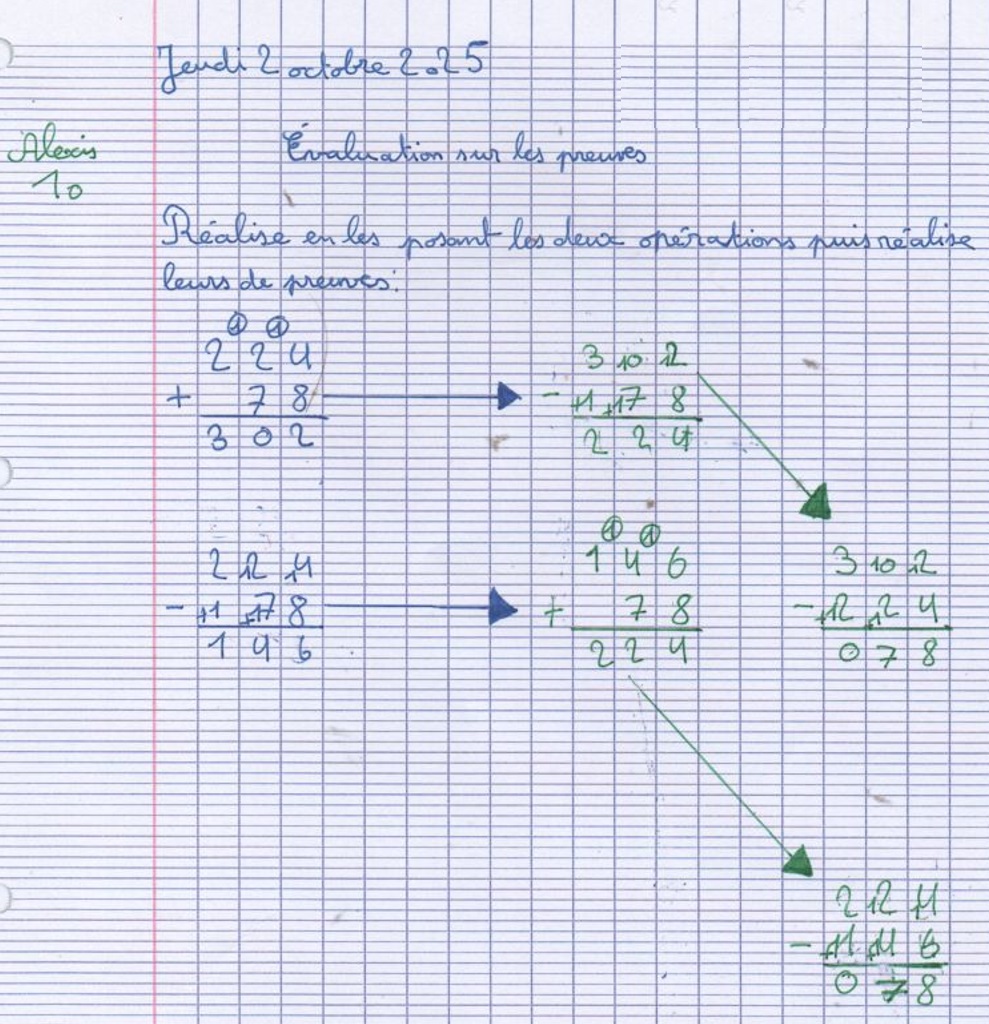 Jeudi 2 octobre 2025
Alexis
10
Évaluation sur les preuves
Réalise en les posant les deux opérations puis réalise
leurs de preuves:
1 1
2 2 4
+ 7 8
3 0 2
3 10 12
- +1 +17 8
2 2 4
2 12 14
- +1 +17 8
1 4 6
1 1
1 4 6
+ 7 8
2 2 4
3 10 12
- +12 +12 4
0 7 8
2 12 14
- +11 +14 6
0 7 8